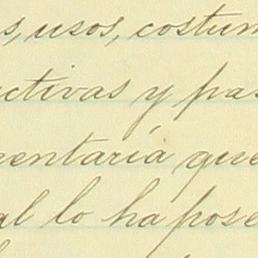 s, usos, costum
ctivas y pas
entaria que
al lo ha pose